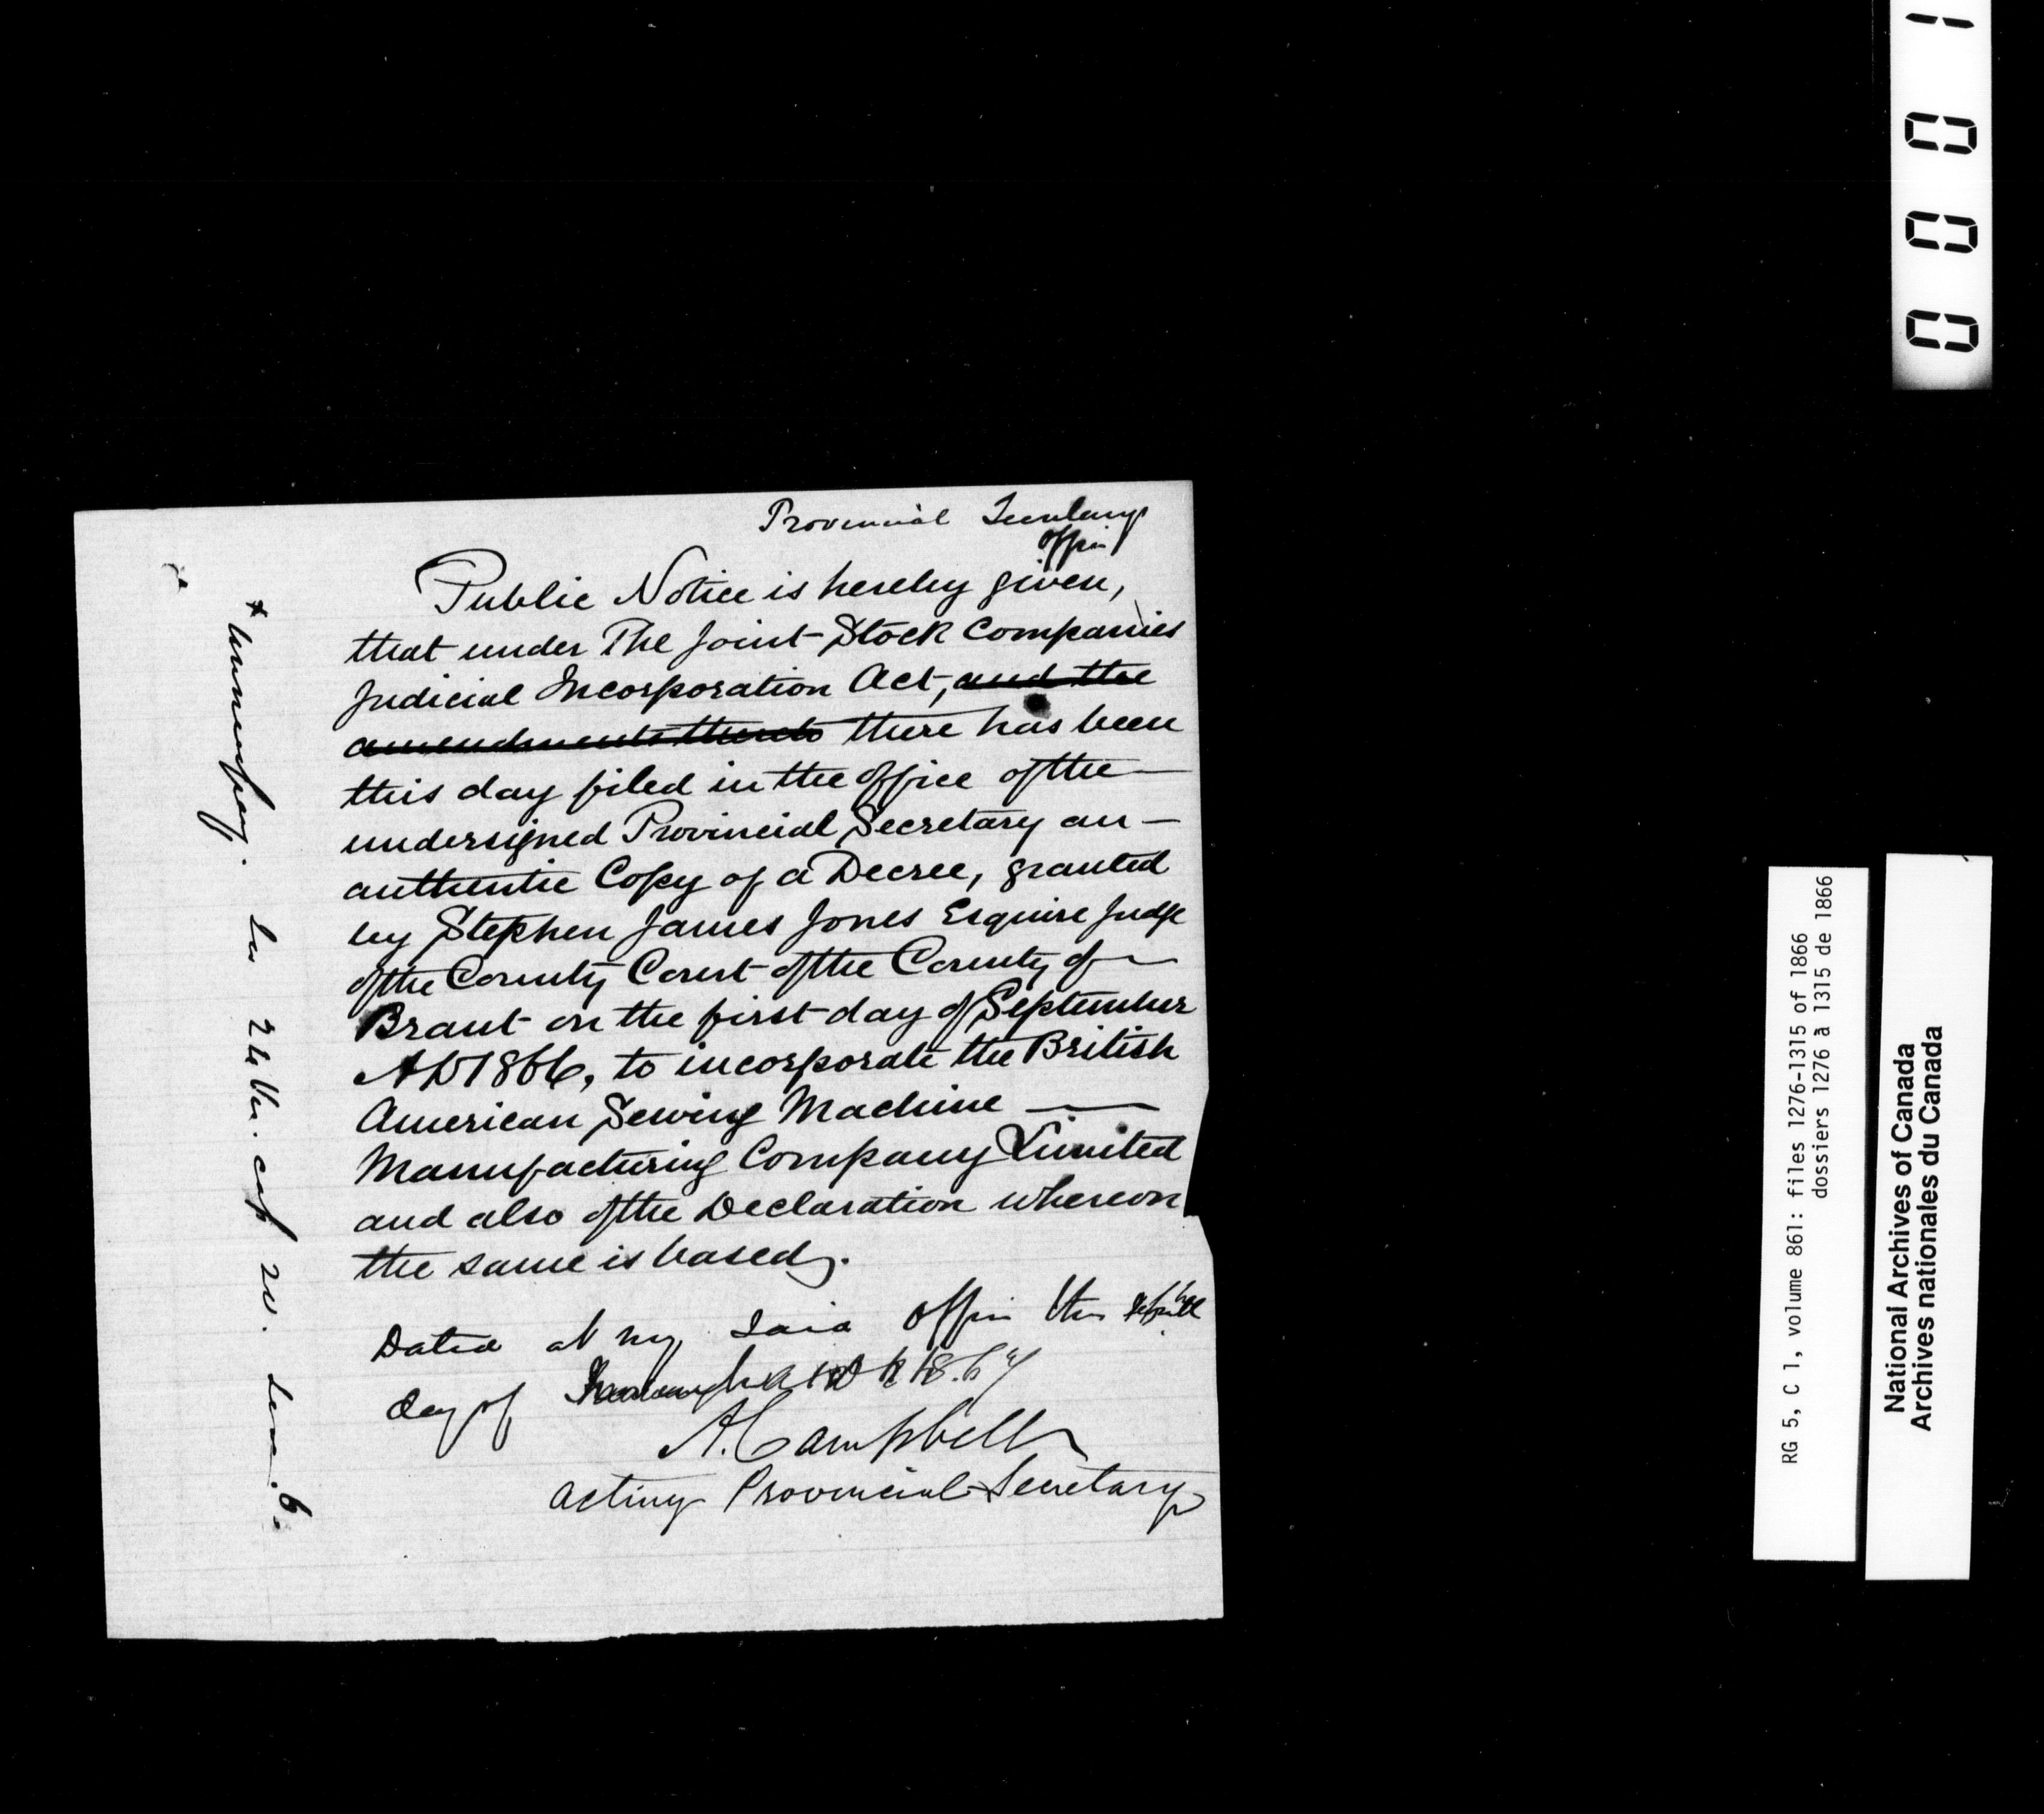 Provincial Secretarys
Office
Public Notice is hereby given,
that under The Joint Stock Companies
Judicial Incorporation Act, and the
amendments thereto there has been
this day filed in the office of the
undersigned Provincial Secretary an
authentic Copy of a Decree, granted
by Stephen James Jones Esquire Judge
of the County Court of the County of
Brant on the first day of September
AD 1866, to incorporate the British
American Sewing Machine
Manufacturing Company Limited
and also of the Declaration whereon
the same is based.
Dated at my said Office this
day of
A. Campbell
Acting Provincial Secretary
* Unnecessary. See 24 Vic. cap 20. Sec. 6.
0001
RG 5, C 1, volume 861: files 1276-1315 of 1866
dossiers 1276 à 1315 de 1866
National Archives of Canada
Archives nationales du Canada